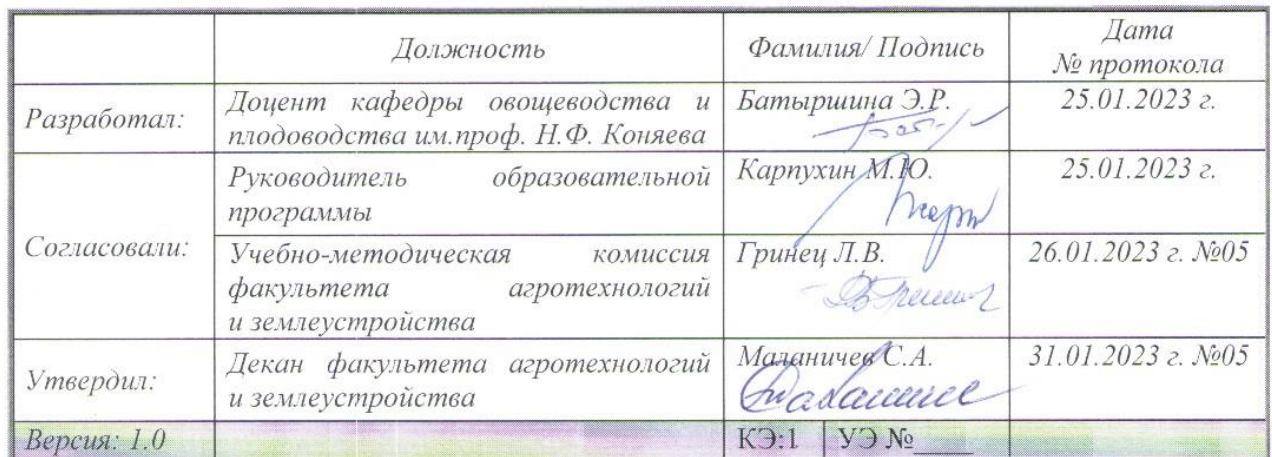 Должность
Фамилия/ Подпись
Дата
№ протокола
Разработал:
Доцент кафедры овощеводства и
плодоводства им.проф. Н.Ф. Коняева
Батыршина Э.Р.
25.01.2023 г.
Согласовали:
Руководитель образовательной
программы
Карпухин М.Ю.
25.01.2023 г.
Учебно-методическая комиссия
факультета агротехнологий
и землеустройства
Гринец Л.В.
26.01.2023 г. №05
Утвердил:
Декан факультета агротехнологий
и землеустройства
Маланичев С.А.
31.01.2023 г. №05
Версия: 1.0
КЭ:1
УЭ №____